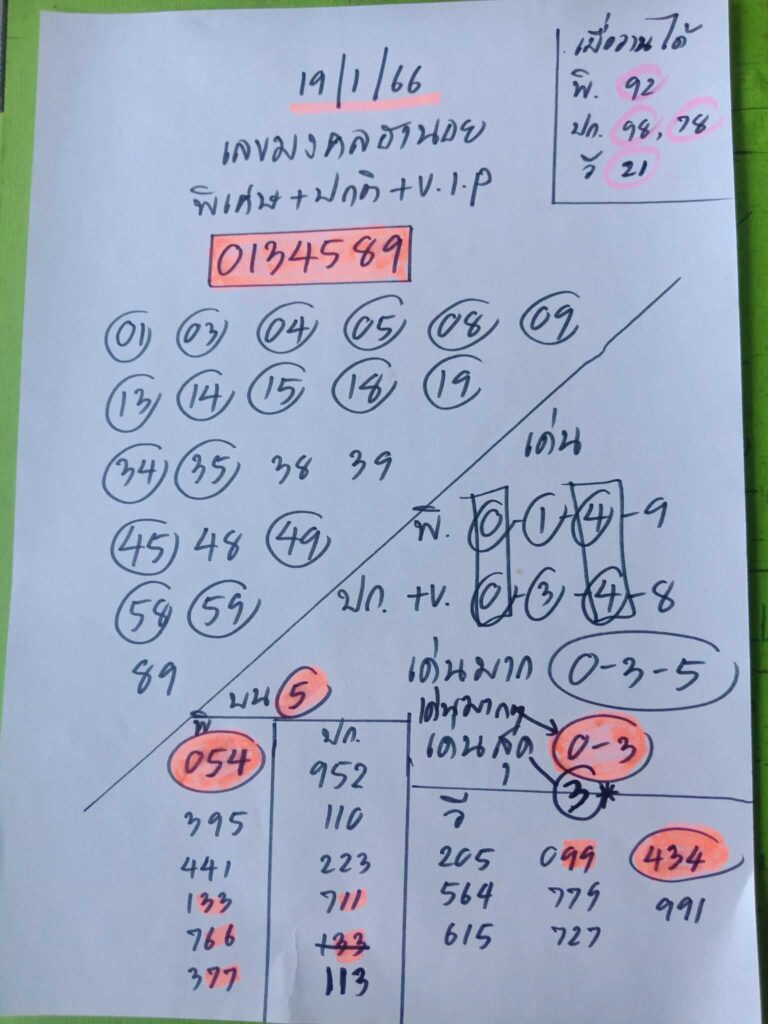 เมื่อวานได้
พิ. 92
ปก. 98, 78
วี 21
19/1/66
เลขมงคลฮานอย
พิเศษ+ปกติ+V.I.P
0134589
01 03 04 05 08 09
13 14 15 18 19
34 35 38 39
45 48 49
58 59
89
เด่น
พิ. 0-1-4-9
ปก. +V. 0-3-4-8
เด่นมาก 0-3-5
เด่นมากๆ
เด่นสุด 0-3
3*
บน 5
พิ
054
395
441
133
766
377
ปก.
952
110
223
711
133
113
วี
205 099 434
564 779 991
615 727